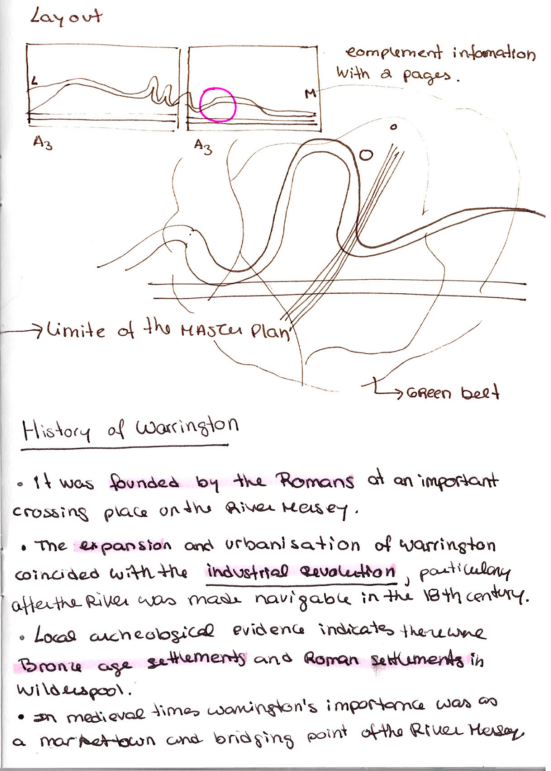 Layout
complement information
with 2 pages.
L
M
A3
A3
Limite of the MASTER Plan
GREEN belt
History of Warrington
• It was founded by the Romans at an important
crossing place on the River Mersey.
• The expansion and urbanisation of Warrington
coincided with the industrial revolution, particulary
after the River was made navigable in the 18th century.
• Local archeological evidence indicates there were
Bronze age settlements and Roman settlements in
Wilderspool.
• In medieval times Warrington's importance was as
a market town and bridging point of the River Mersey